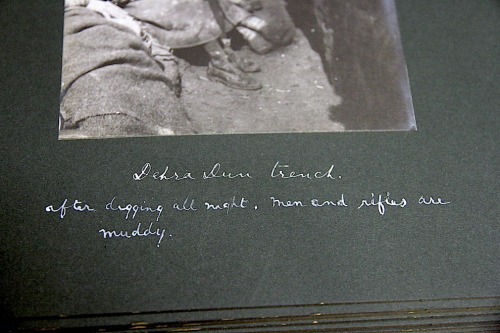 Dehra Dun trench.
after digging all night. Men and rifles are
muddy.